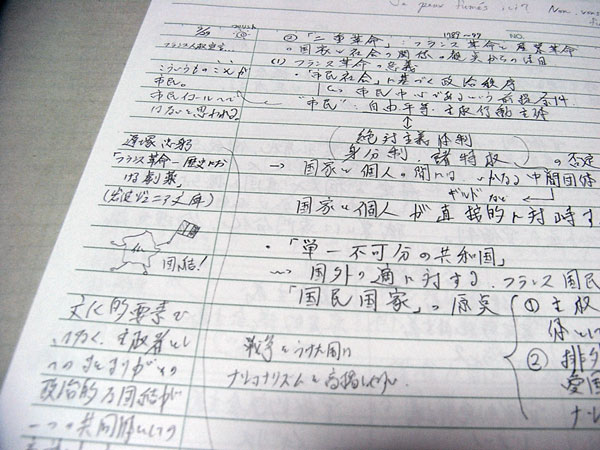 Je peux fumer ici? Non, vous
1789~99 NO.
② 「二重革命」:フランス革命と産業革命
の国家と社会の関係の
(1) フランス革命の意義
・「市民社会」に基づく政治秩序
↳ 市民中心であるという
"市民":自由平等・主取行動主体
↕
(絶対主義体制
身分制・諸特权) の否定
→ 国家と個人の間にある いかなる中間団体
ギルドなど
国家と個人が直接的に対峙する
・「単一不可分の共和国」
国外の 対する フランス国民
「国民国家」の原点
① 主权
体として
② 排外
愛国
ナショ
フランス人权宣言
こういうものこそが
市民。
市民イコールで
はないと思われる。
遅塚忠躬
「フランス革命―歴史にお
ける劇薬」
(岩波ジュニア文庫)
団結!
文化的要素で
はなく、主权者とし
政治的な団結が
一つの共同体としての
戦争をうけた国に
ナショナリズムを高揚しやすい